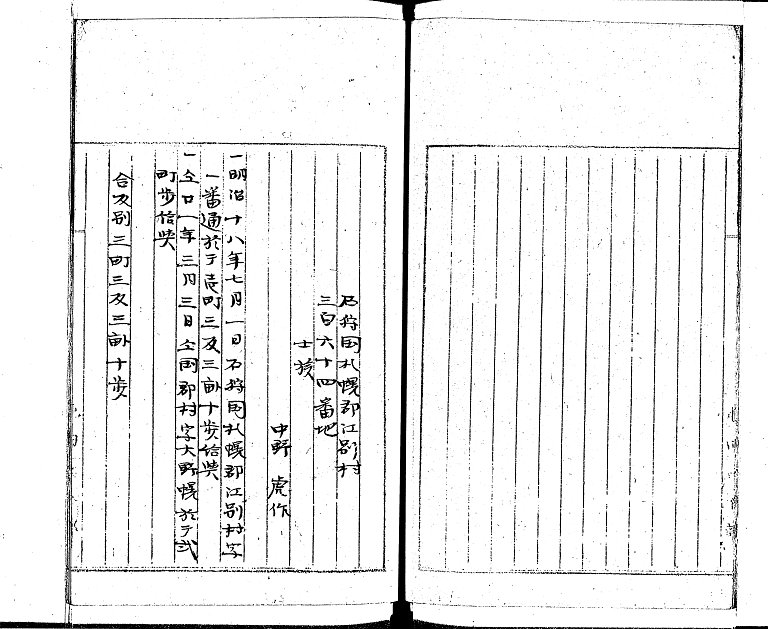 石狩国札幌郡江別村
三百六十四番地
士族
中野 虎作
一明治十八年七月一日石狩国札幌郡江別村字
一番通於テ壱町三反三畝十歩給与
一仝廿一年三月三日仝国郡村字大野幌於テ弐
町歩給与
合反別三町三反三畝十歩